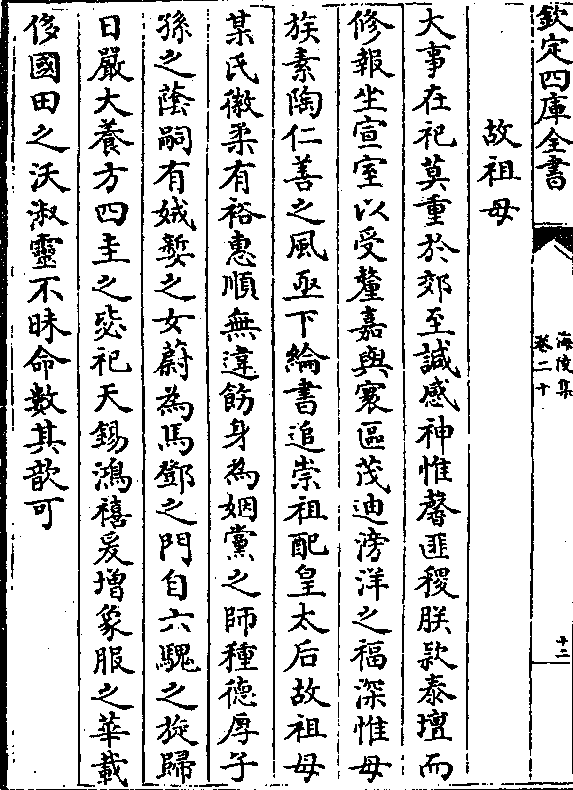 欽定四庫全書
海陵集
卷二十
十二
故祖母
大事在祀莫重於郊至諴感神惟馨匪稷朕款泰壇而
修報坐宣室以受釐嘉與寰區茂迪滂洋之福深惟母
族素陶仁善之風亟下綸書追崇祖配皇太后故祖母
某氏徽柔有裕惠順無違飭身為姻黨之師種德厚子
孫之蔭嗣有娀嫛之女蔚為馬鄧之門自六騩之旋歸
日嚴大養方四圭之毖祀天錫鴻禧爰增象服之華載
侈國田之沃淑靈不昧命數其歆可